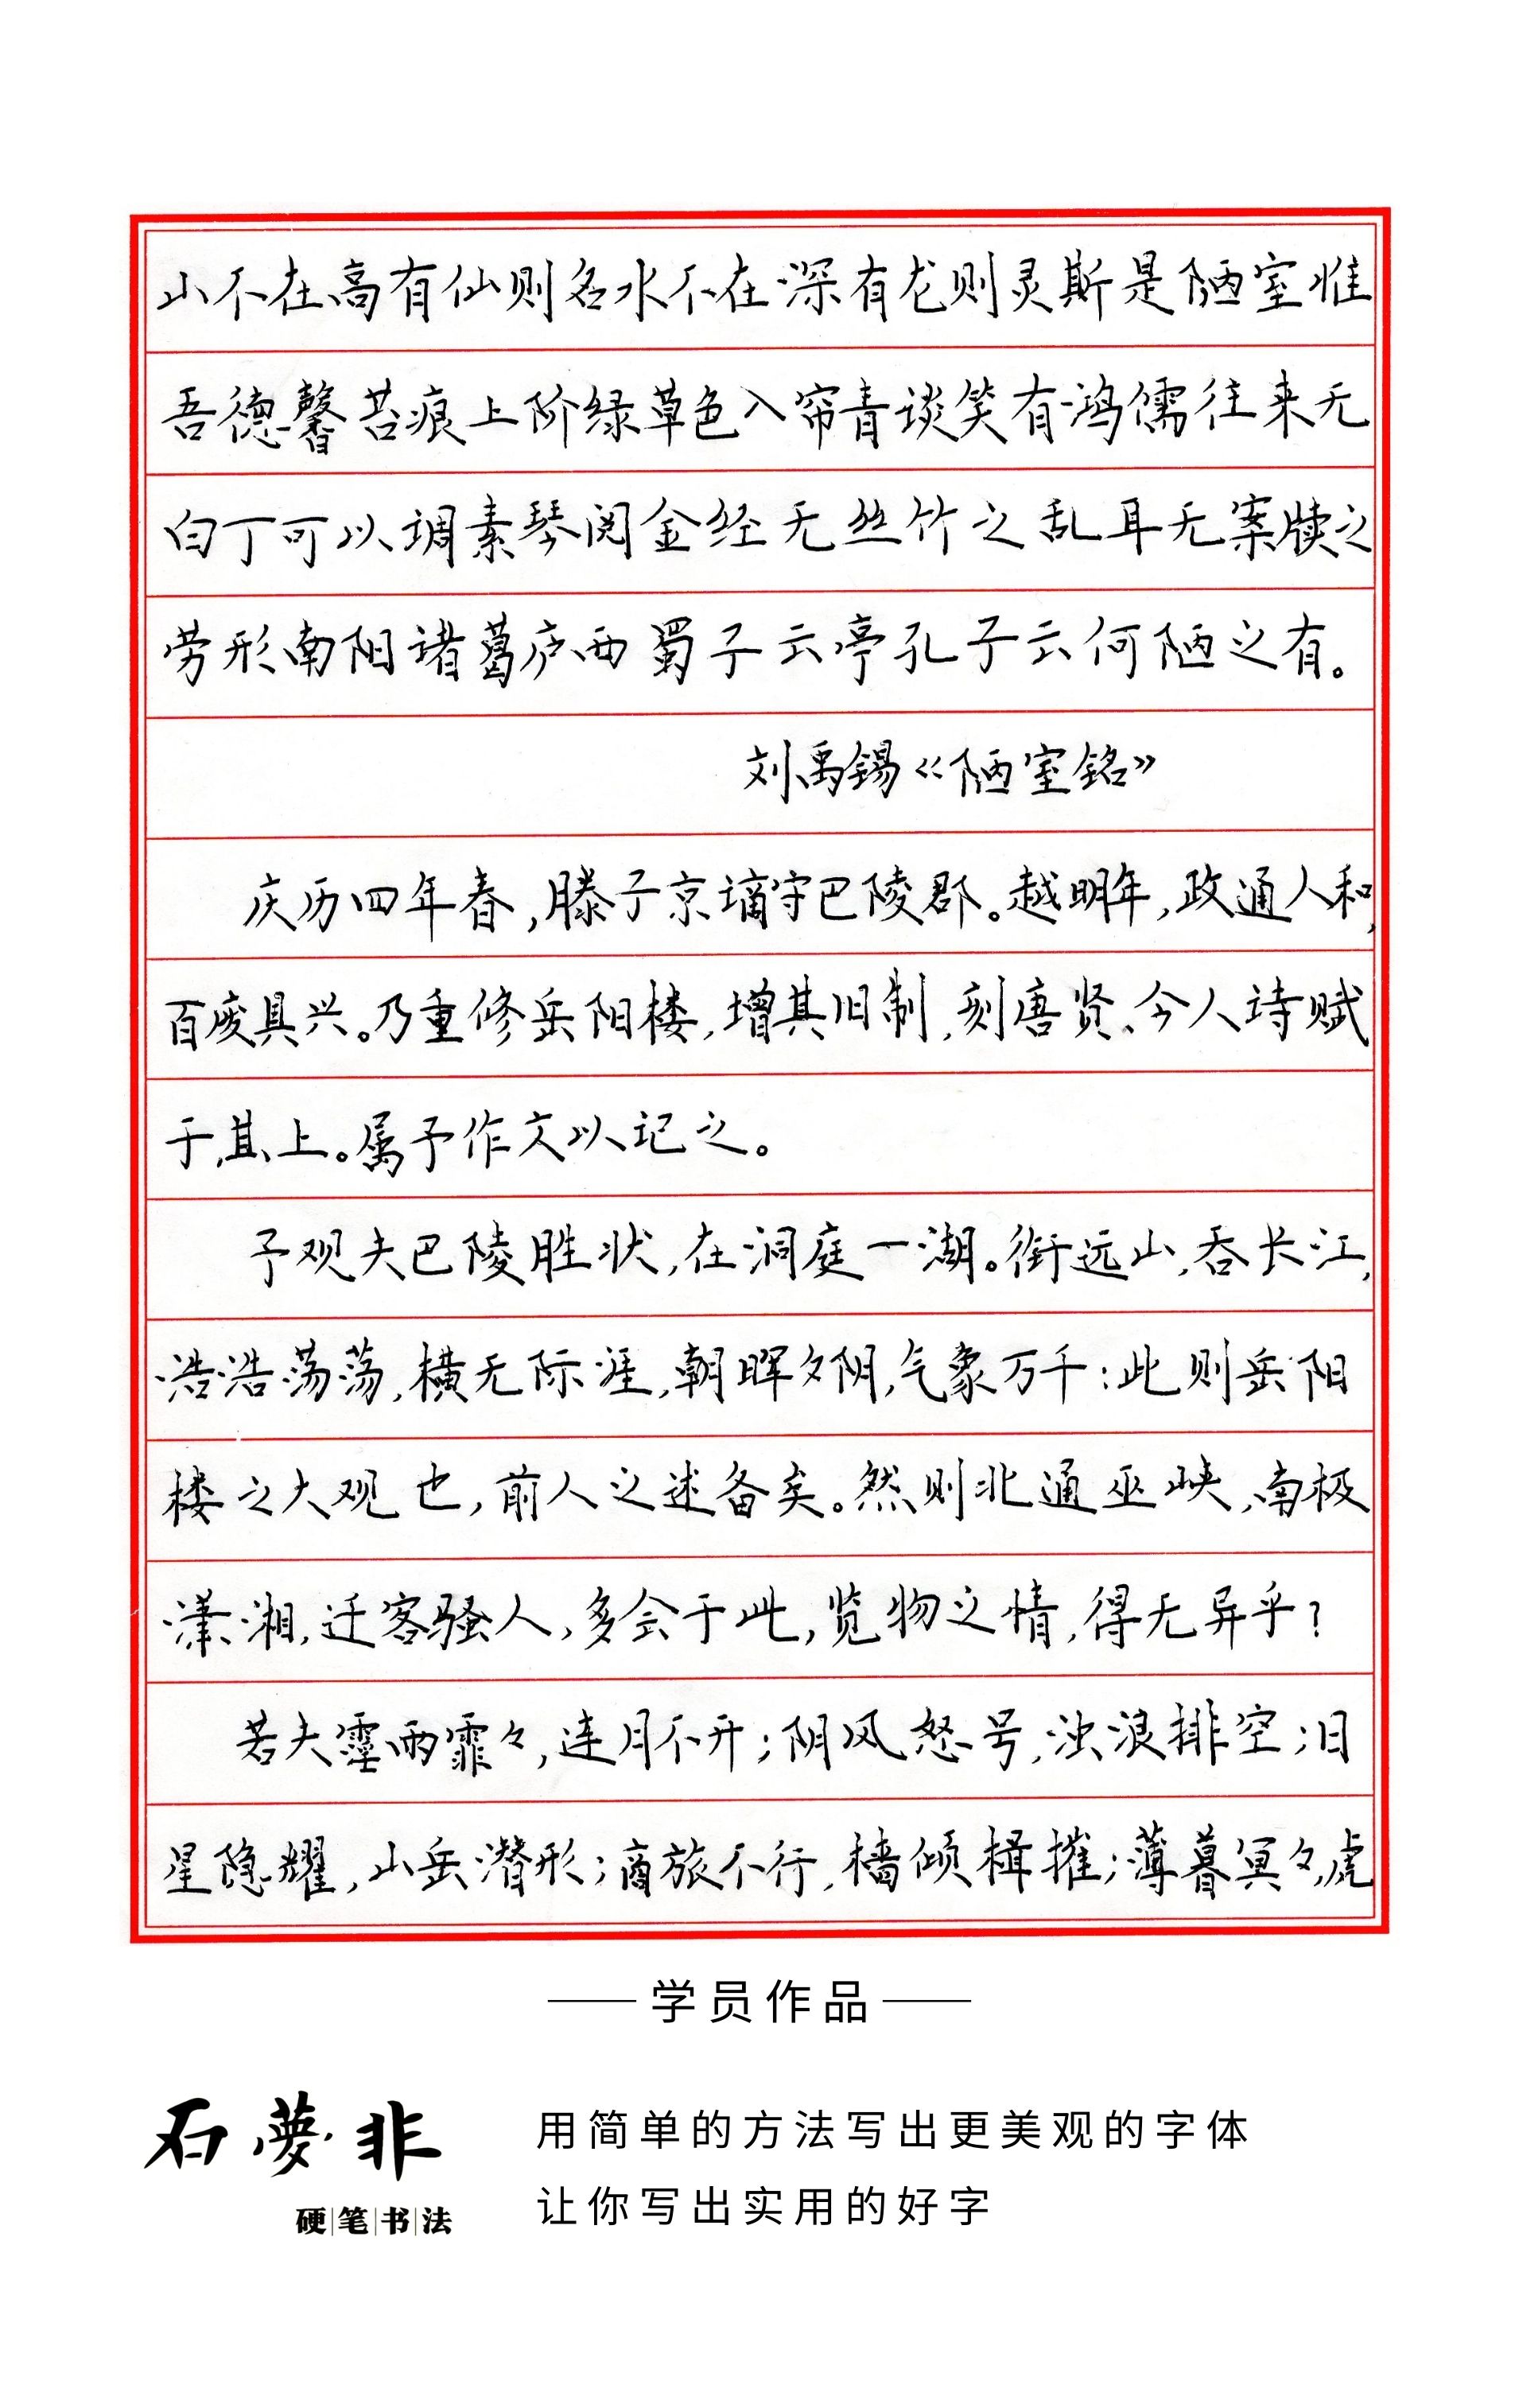 山不在高有仙则名水不在深有龙则灵斯是陋室惟
吾德馨苔痕上阶绿草色入帘青谈笑有鸿儒往来无
白丁可以调素琴阅金经无丝竹之乱耳无案牍之
劳形南阳诸葛庐西蜀子云亭孔子云何陋之有。
刘禹锡《陋室铭》
庆历四年春,滕子京谪守巴陵郡。越明年,政通人和,
百废具兴。乃重修岳阳楼,增其旧制,刻唐贤、今人诗赋
于其上。属予作文以记之。
予观夫巴陵胜状,在洞庭一湖。衔远山,吞长江,
浩浩荡荡,横无际涯,朝晖夕阴,气象万千:此则岳阳
楼之大观也,前人之述备矣。然则北通巫峡,南极
潇湘,迁客骚人,多会于此,览物之情,得无异乎?
若夫霪雨霏々,连月不开;阴风怒号,浊浪排空;日
星隐耀,山岳潜形;商旅不行,樯倾楫摧;薄暮冥々,虎
学员作品
石夢非
硬|笔|书|法
用简单的方法写出更美观的字体
让你写出实用的好字